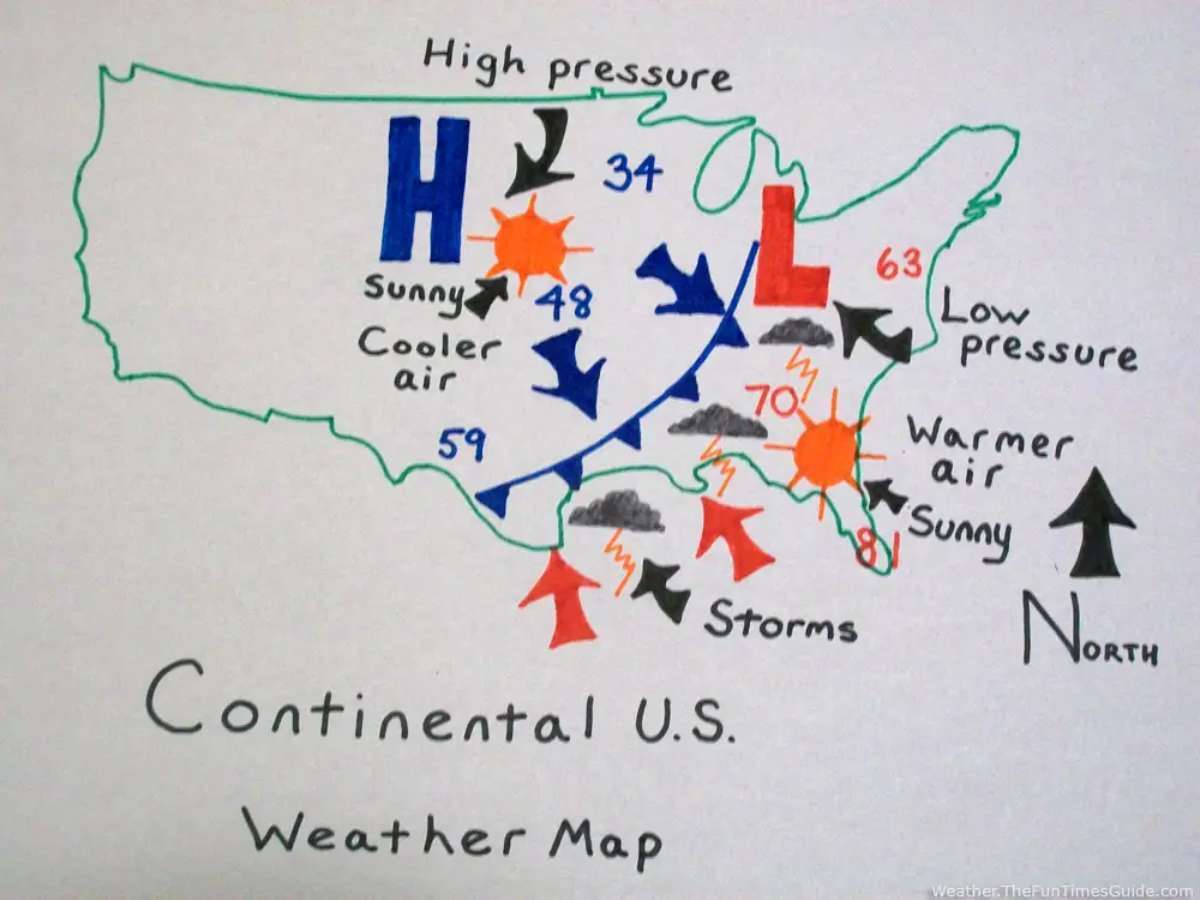 High pressure
H
34
L
63
Sunny
48
Low
pressure
Cooler
air
70
59
Warmer
air
Sunny
81
Storms
NORTH
Continental U.S.
Weather Map
Weather.TheFunTimesGuide.com